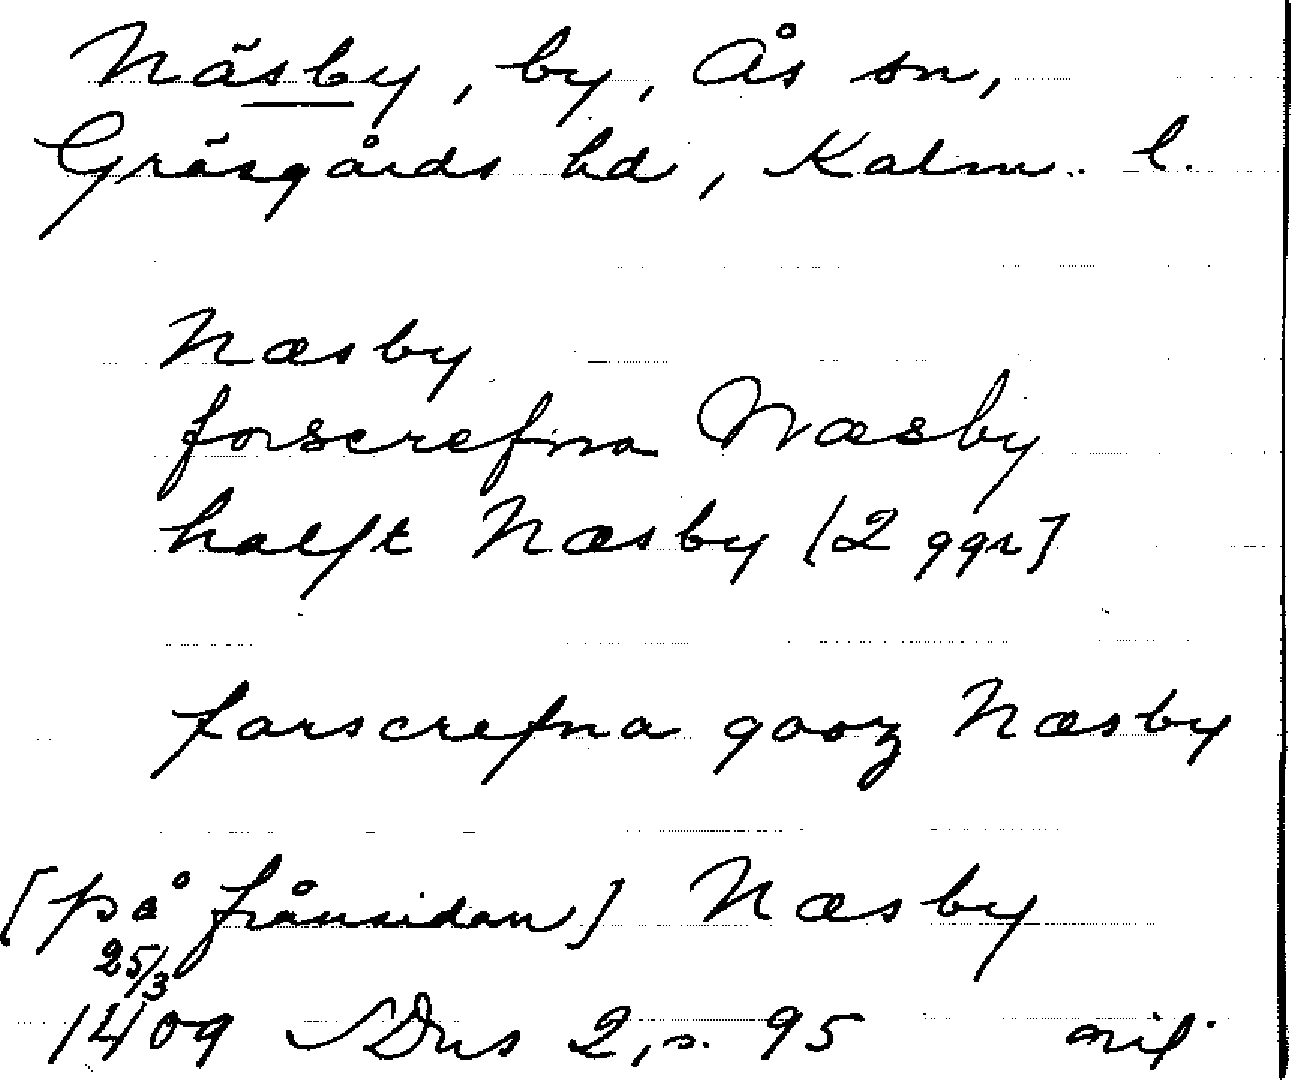 Näsby, by, Ås sn,
Gräsgårds hd, Kalm. l.
Næsby
forscrefna Næsby
halft Næsby [2 ggr]
farscrefna gooz Næsby
[på frånsidan] Næsby
25/3
1409 SDns 2, s. 95